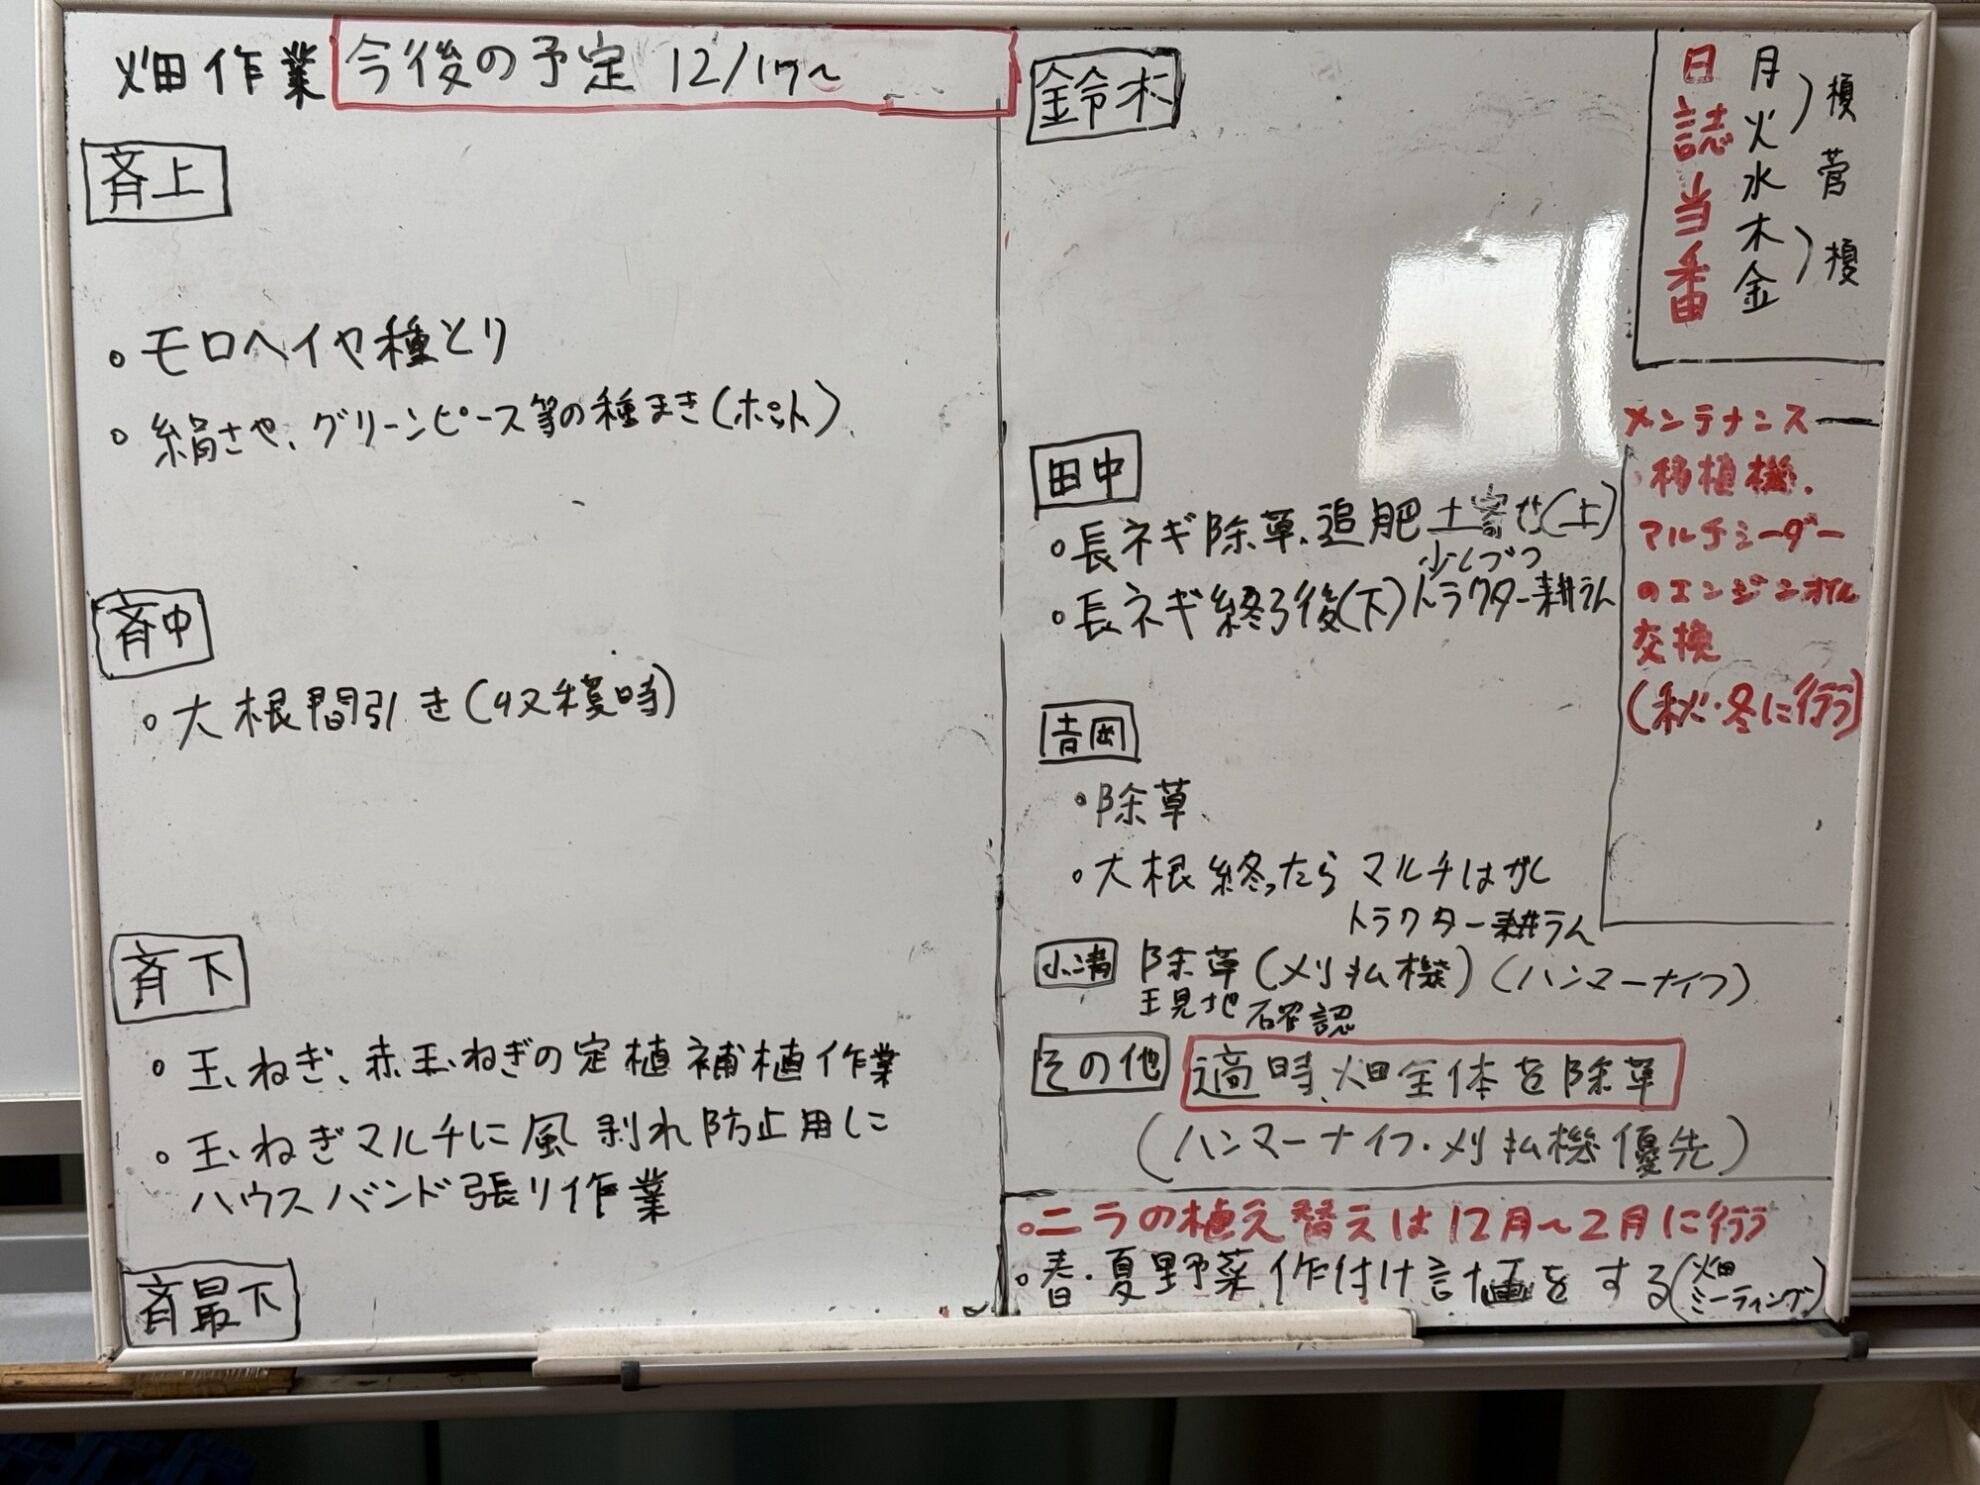 畑作業 今後の予定 12/17~
斉上
・モロヘイヤ種とり
・絹さや、グリーンピース等の種まき(ポット)
斉中
・大根間引き(収穫時)
斉下
・玉ねぎ、赤玉ねぎの定植補植作業
・玉ねぎマルチに風剥れ防止用に
ハウスバンド張り作業
斉最下
鈴木
田中
・長ネギ除草、追肥 土寄せ(上)
少しづつ
・長ネギ終了後(下)トラクター耕うん
吉岡
・除草
・大根終ったら マルチはがし
トラクター耕うん
小清 除草(刈払機)(ハンマーナイフ)
現地確認
その他 適時、畑全体を除草
(ハンマーナイフ・刈払機優先)
・ニラの植え替えは12月~2月に行う
・春・夏野菜作付け計画をする(畑ミーティング)
日誌当番
月
火
) 榎
水 菅
木
金
) 榎
メンテナンス
・移植機、
マルチシーダー
のエンジンオイル
交換
(秋・冬に行う)